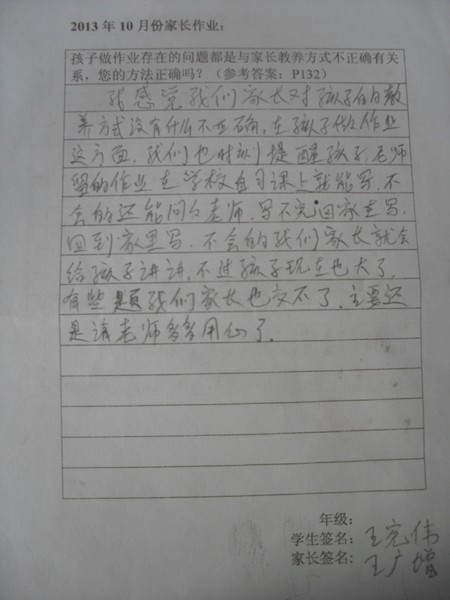 2013 年 10 月份家长作业：
孩子做作业存在的问题都是与家长教养方式不正确有关
系，您的方法正确吗？（参考答案：P132）
我感觉我们家长对孩子的教
养方式没有什么不正确，在孩子做作业
这方面，我们也时刻提醒孩子，老师
留的作业在学校自习课上就能写，不
会的还能问问老师，写不完回家去写，
回到家里写，不会的我们家长就会
给孩子讲讲，不过孩子现在也大了，
有些题我们家长也交不了，主要还
是请老师多多用心了。
年级：
学生签名：王宪伟
家长签名：王广增